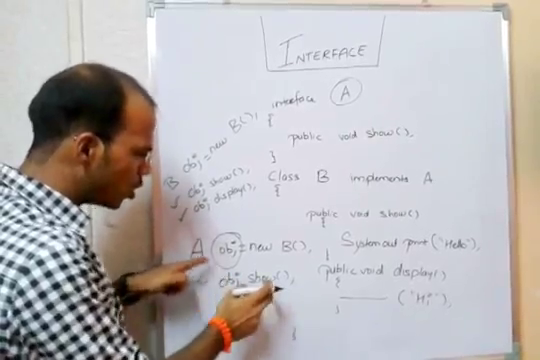 INTERFACE
interface A
{
public void show();
}
Class B implements A
{
public void show()
System out print ("Hello");
}
public void display()
{
("Hi");
}
}
B obj = new B();
✓ obj show();
✓ obj display();
A obj = new B();
obj show();